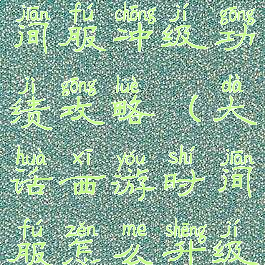 jiān fú chōng jí gōng
间服冲级功
jì gōng lüè dà
绩攻略（大
huà xī yóu shí jiān
话西游时间
fú zěn me shēng jí
服怎么升级